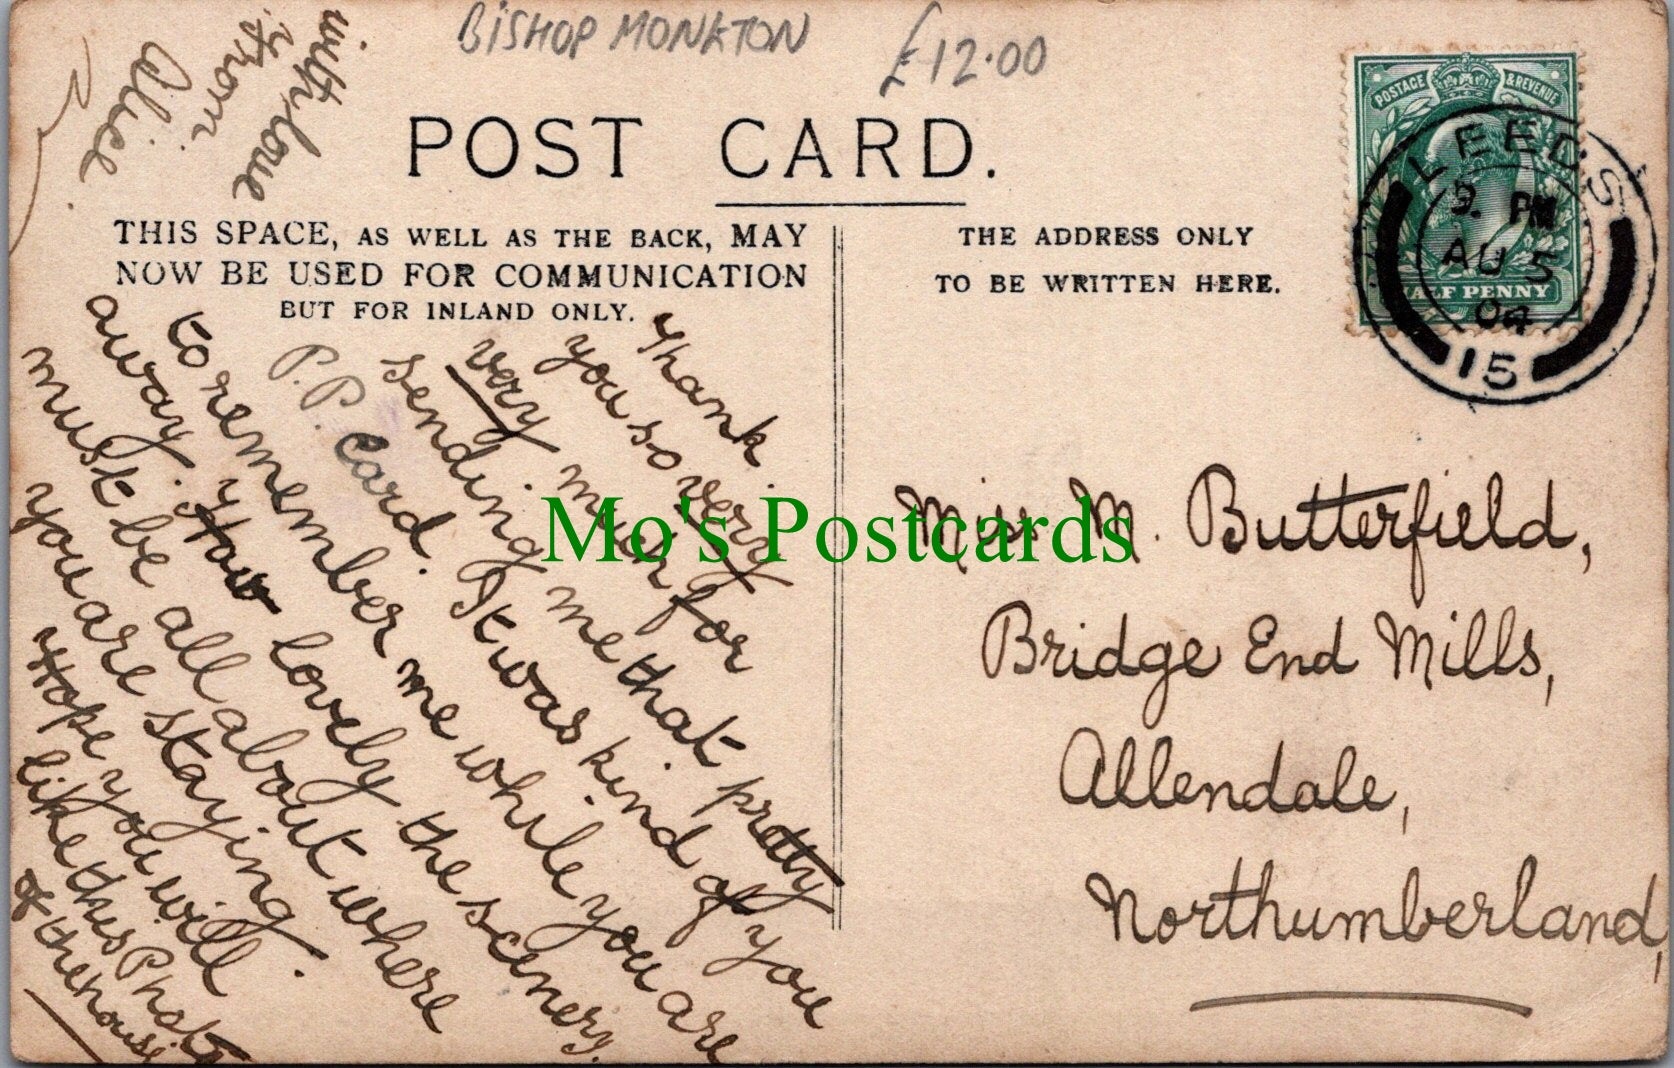 BISHOP MONKTON
£12.00
POST CARD.
THIS SPACE, AS WELL AS THE BACK, MAY
NOW BE USED FOR COMMUNICATION
BUT FOR INLAND ONLY.
THE ADDRESS ONLY
TO BE WRITTEN HERE.
POSTAGE & REVENUE
HALF PENNY
LEEDS
9. PM
AU 5
04
15
Thank
you so very
very much for
sending me that pretty
P.P. Card. It was kind of you
to remember me while you are
away. How lovely the scenery
must be all about where
you are staying.
Hope you will
like this Photo
of the house
with love
from
Alice
Miss M. Butterfield,
Bridge End Mills,
Allendale,
Northumberland,
Mo's Postcards